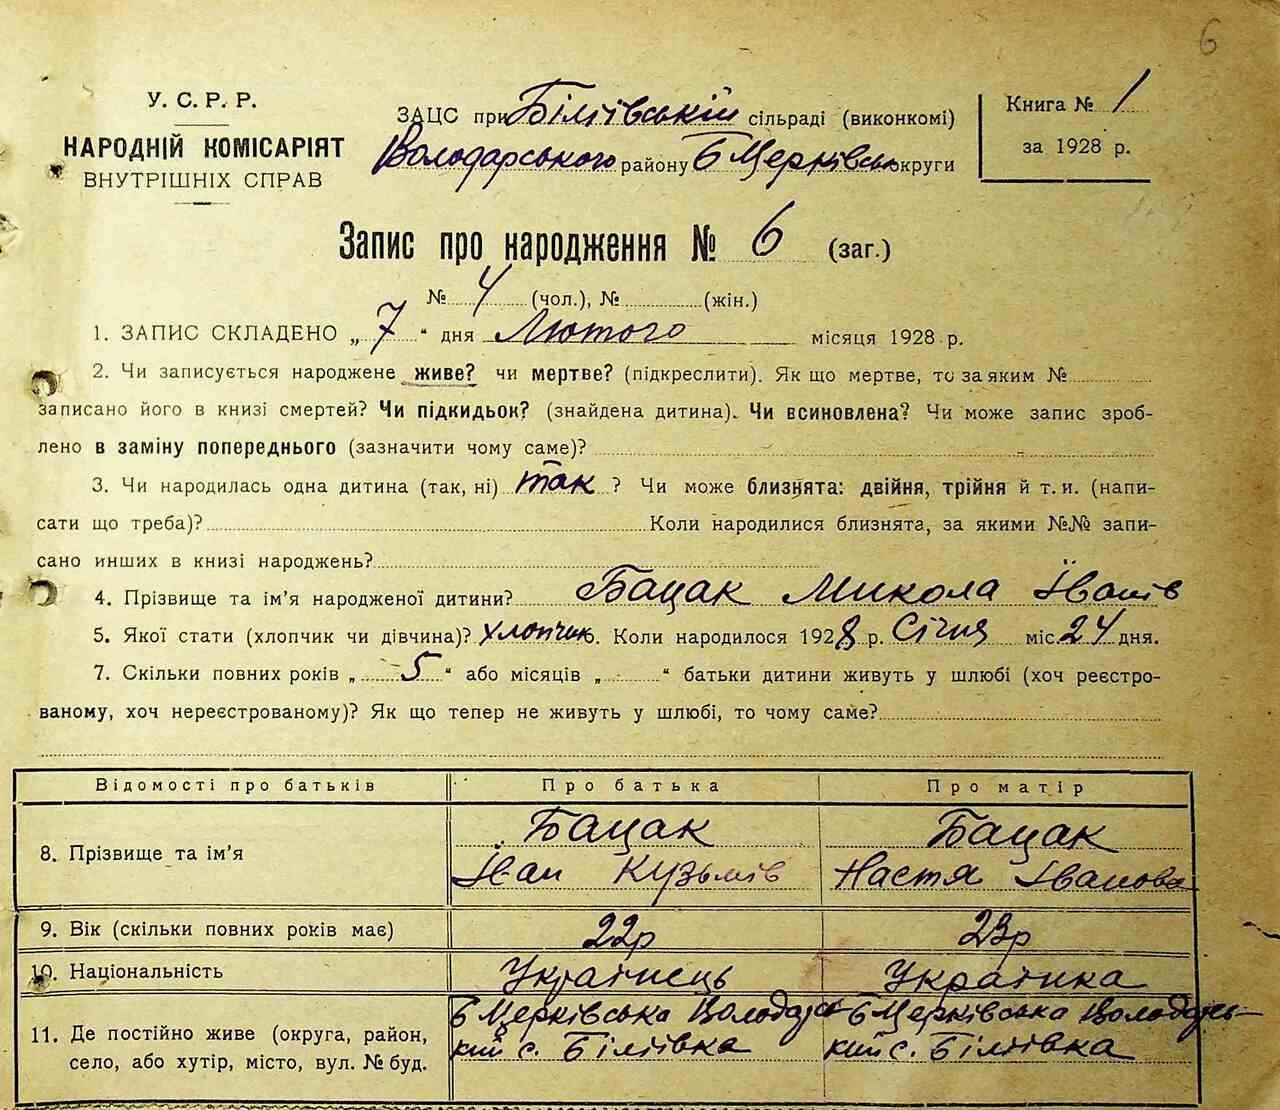 6
У. С. Р. Р.
НАРОДНІЙ КОМІСАРІЯТ
ВНУТРІШНІХ СПРАВ
ЗАЦС при Біліївській сільраді (виконкомі)
Володарського району Б Церківсь округи
Книга № 1
за 1928 р.
Запис про народження № 6 (заг.)
№ 4 (чол.), № (жін.)
1. ЗАПИС СКЛАДЕНО „ 7 “ дня Лютого місяця 1928 р.
2. Чи записується народжене живе? чи мертве? (підкреслити). Як що мертве, то за яким №
записано його в книзі смертей? Чи підкидьок? (знайдена дитина). Чи всиновлена? Чи може запис зроб-
лено в заміну попереднього (зазначити чому саме)?
3. Чи народилась одна дитина (так, ні) так ? Чи може близнята: двійня, трійня й т. и. (напи-
сати що треба)? Коли народилися близнята, за якими №№ запи-
сано инших в книзі народжень?
4. Прізвище та ім’я народженої дитини? Бацак Микола Іванів
5. Якої стати (хлопчик чи дівчина)? хлопчик. Коли народилося 1928 р. Січня міс. 24 дня.
7. Скільки повних років „ 5 “ або місяців „ “ батьки дитини живуть у шлюбі (хоч реєстро-
ваному, хоч нереєстрованому)? Як що тепер не живуть у шлюбі, то чому саме?
Відомості про батьків Про батька Про матір
8. Прізвище та ім’я
Бацак Бацак
Іван Кузьмів Настя Іванова
9. Вік (скільки повних років має) 22р 23р
10. Національність Українець Українка
11. Де постійно живе (округа, район,
село, або хутір, місто, вул. № буд.
Б Церківська Володарсь Б Церківська Володарсь-
кий с. Біліївка кий с. Біліївка